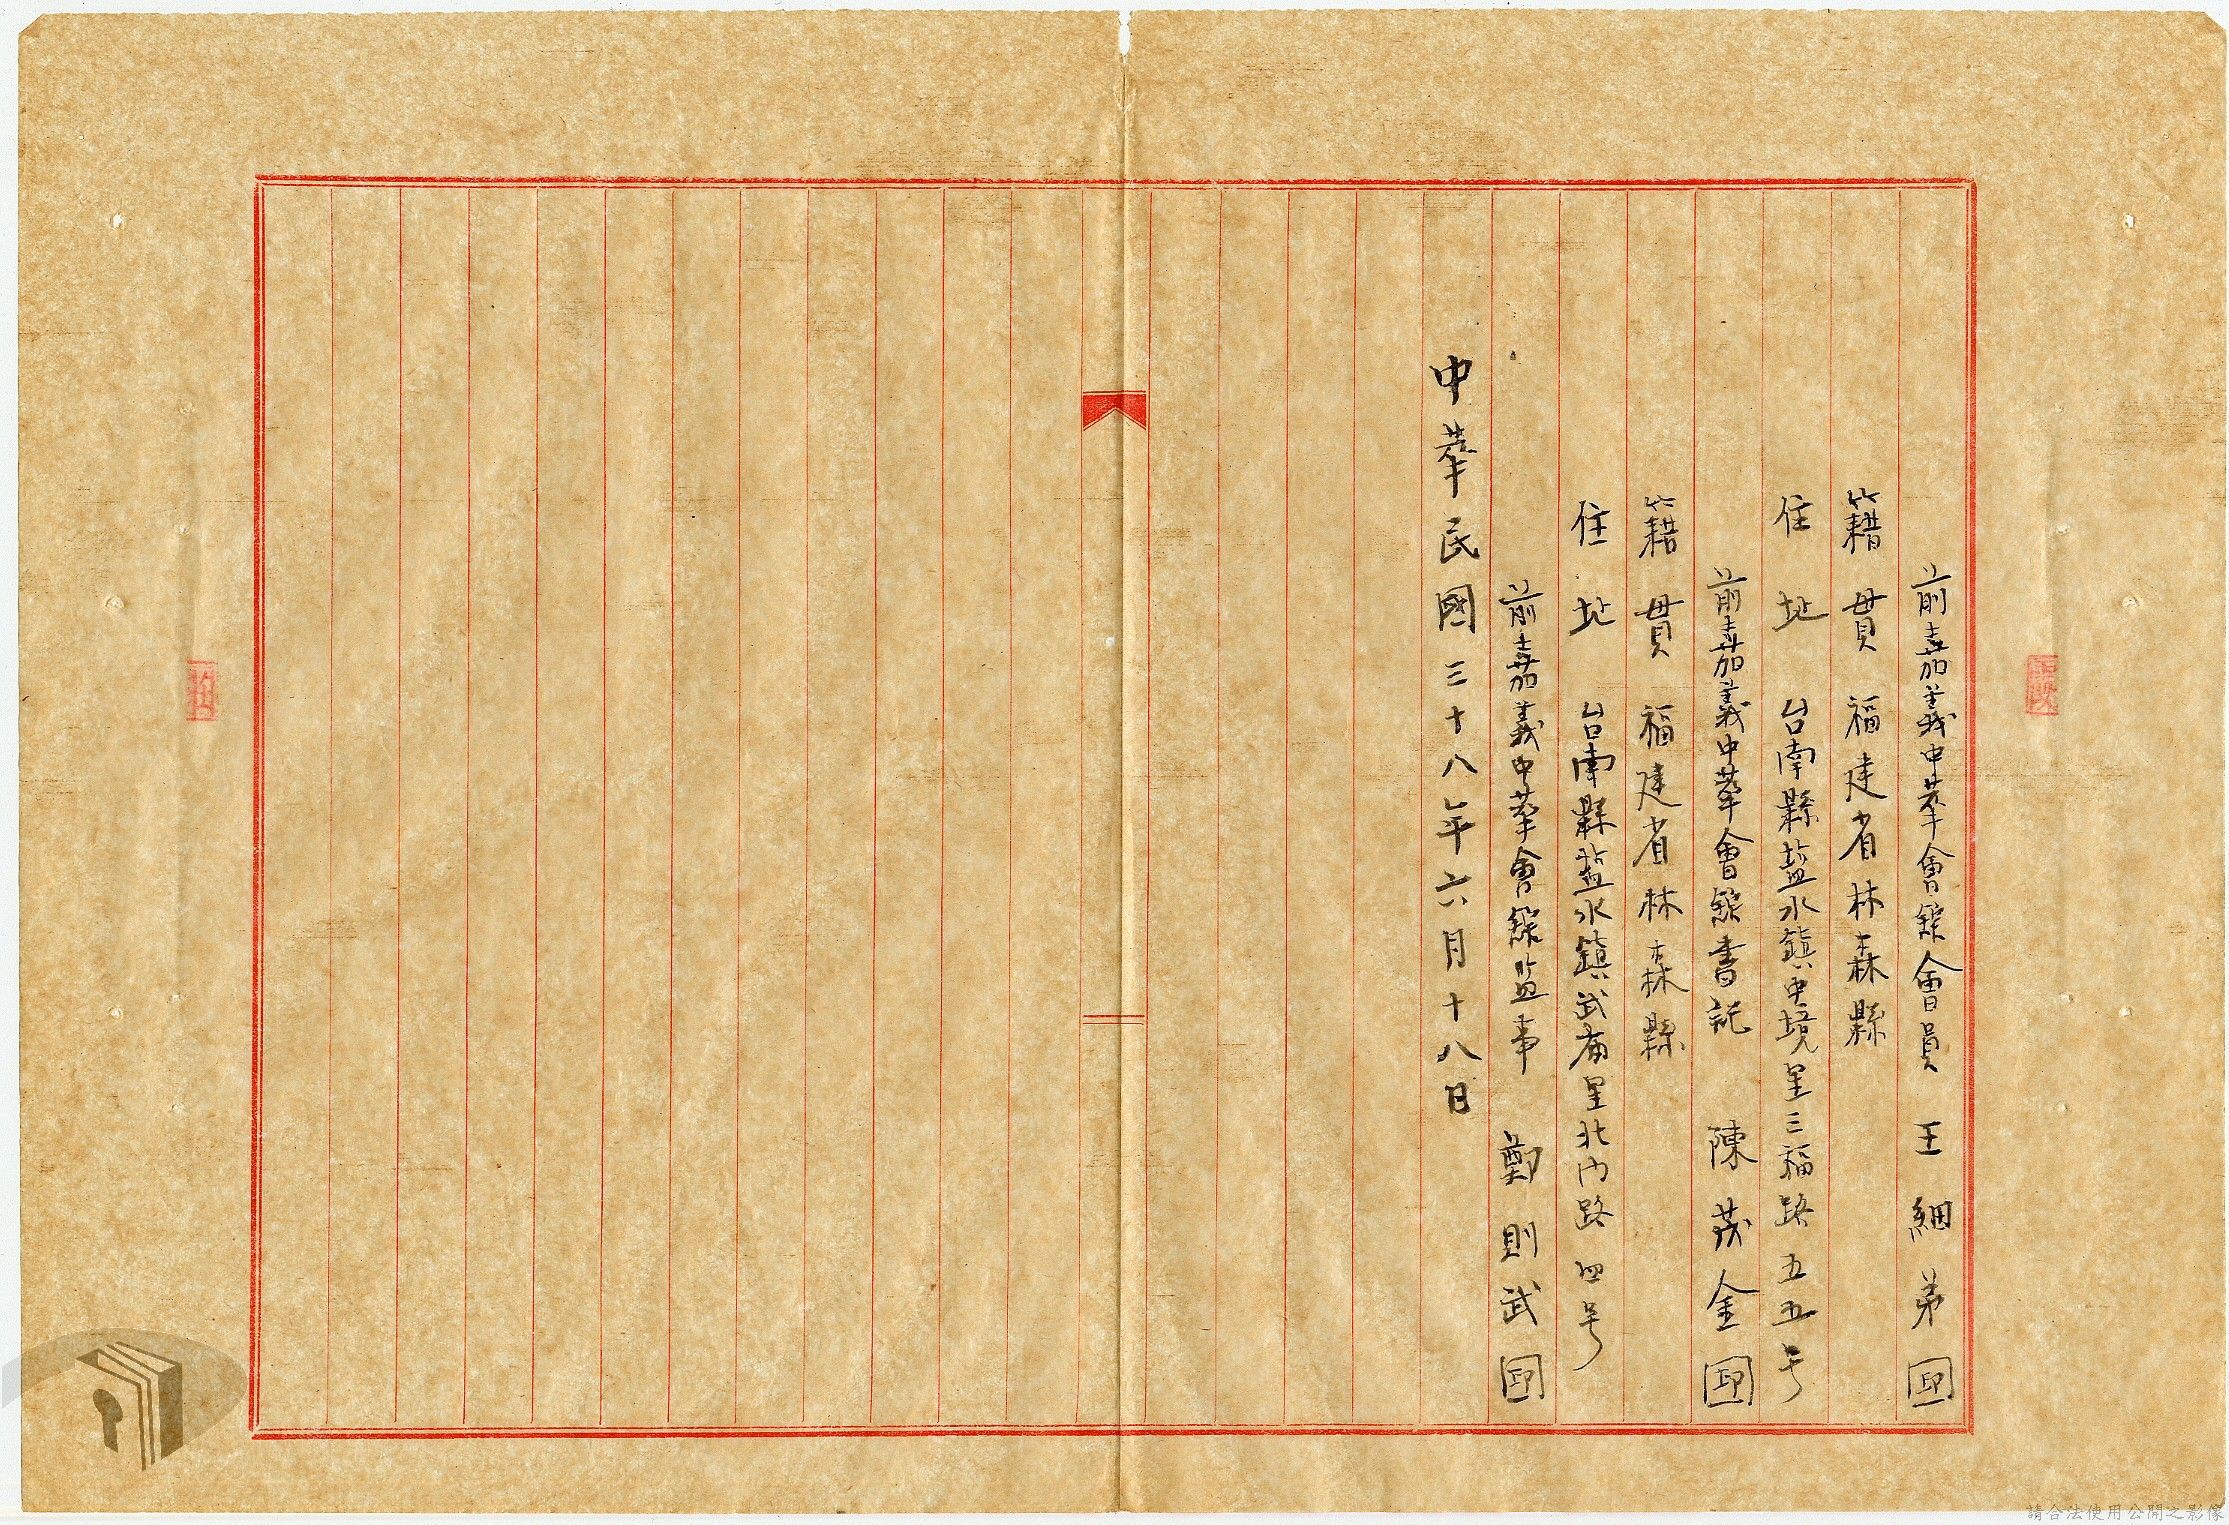 前嘉義中華會館會員 王細弟 印
籍貫 福建省林森縣
住址 台南縣盐水鎮中境里三福路五五号
前嘉義中華會館書記 陳茂金 印
籍貫 福建省林森縣
住址 台南縣盐水鎮武庙里北门路四号
前嘉義中華會館监事 鄭則武 印
中華民國三十八年六月十八日
請合法使用公開之影像